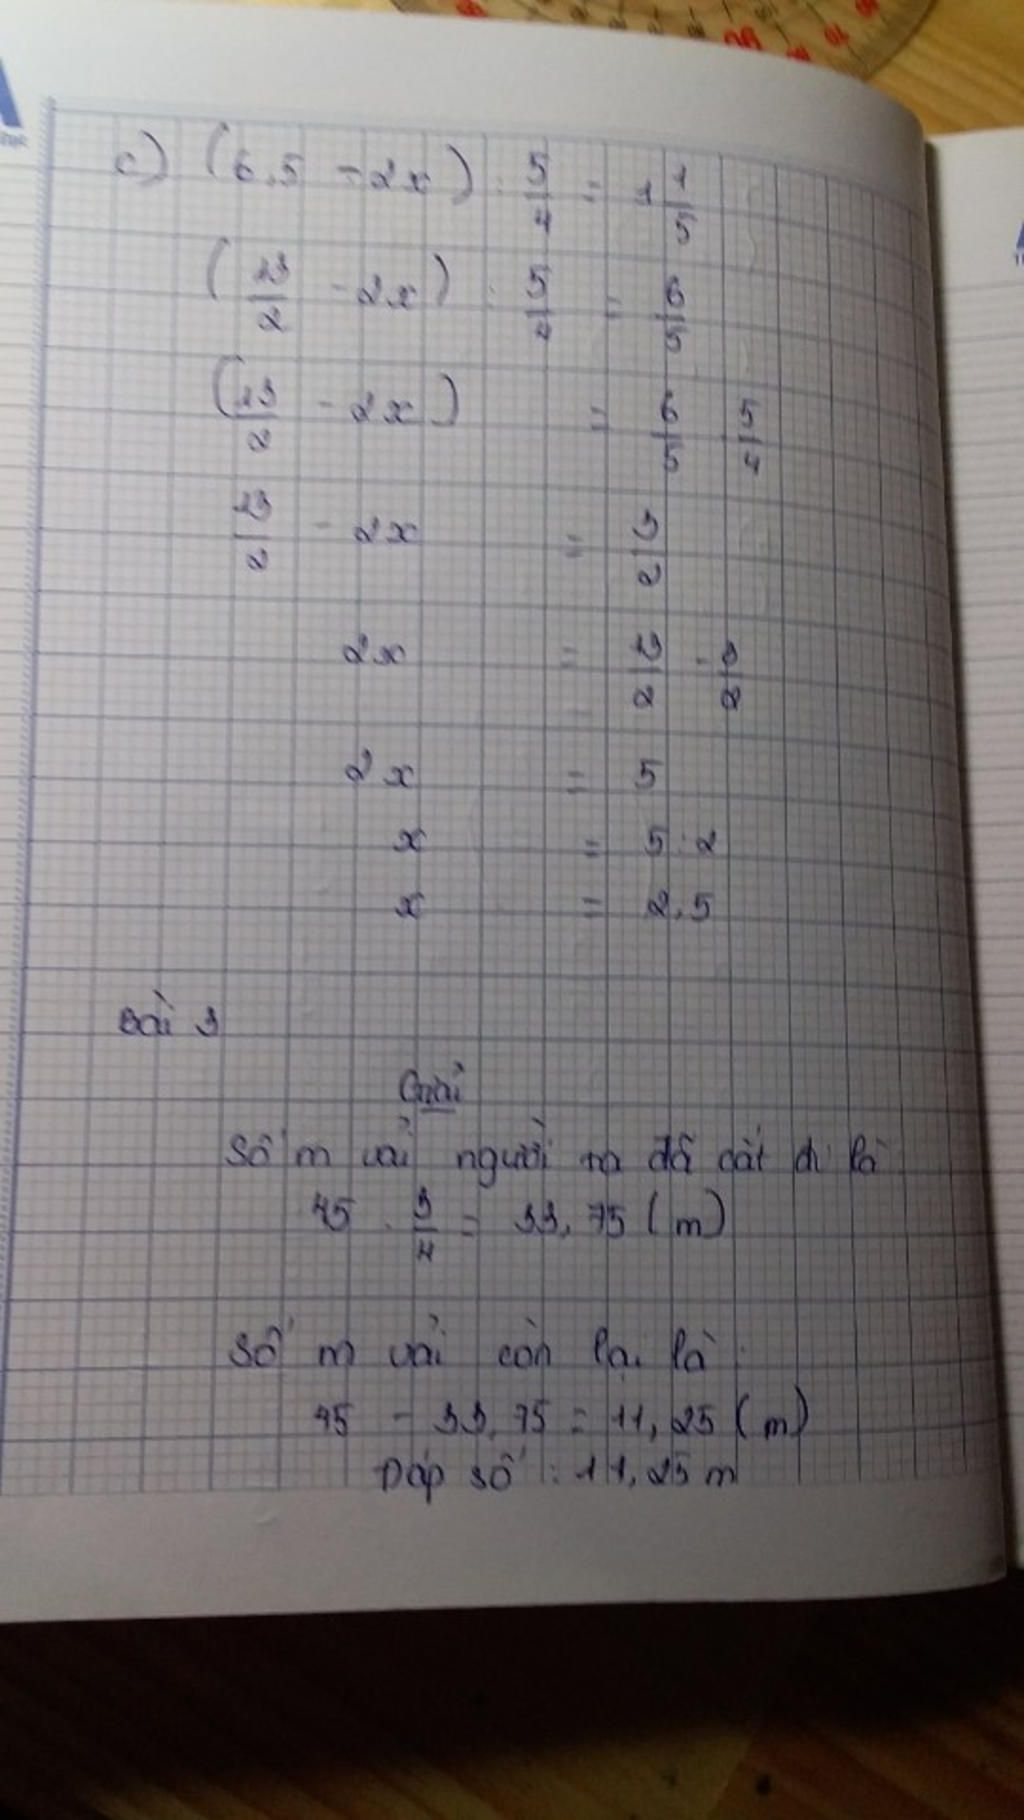 c) (6,5 - 2x) : 5/4 = 1 1/5
(13/2 - 2x) : 5/4 = 6/5
(13/2 - 2x) = 6/5 . 5/4
13/2 - 2x = 3/2
2x = 13/2 - 3/2
2x = 5
x = 5 : 2
x = 2,5
Bài 3
Giải
Số m vải người ta đã cắt đi là
45 . 3/4 = 33,75 (m)
Số m vải còn lại là :
45 - 33,75 = 11,25 (m)
Đáp số : 11,25 m